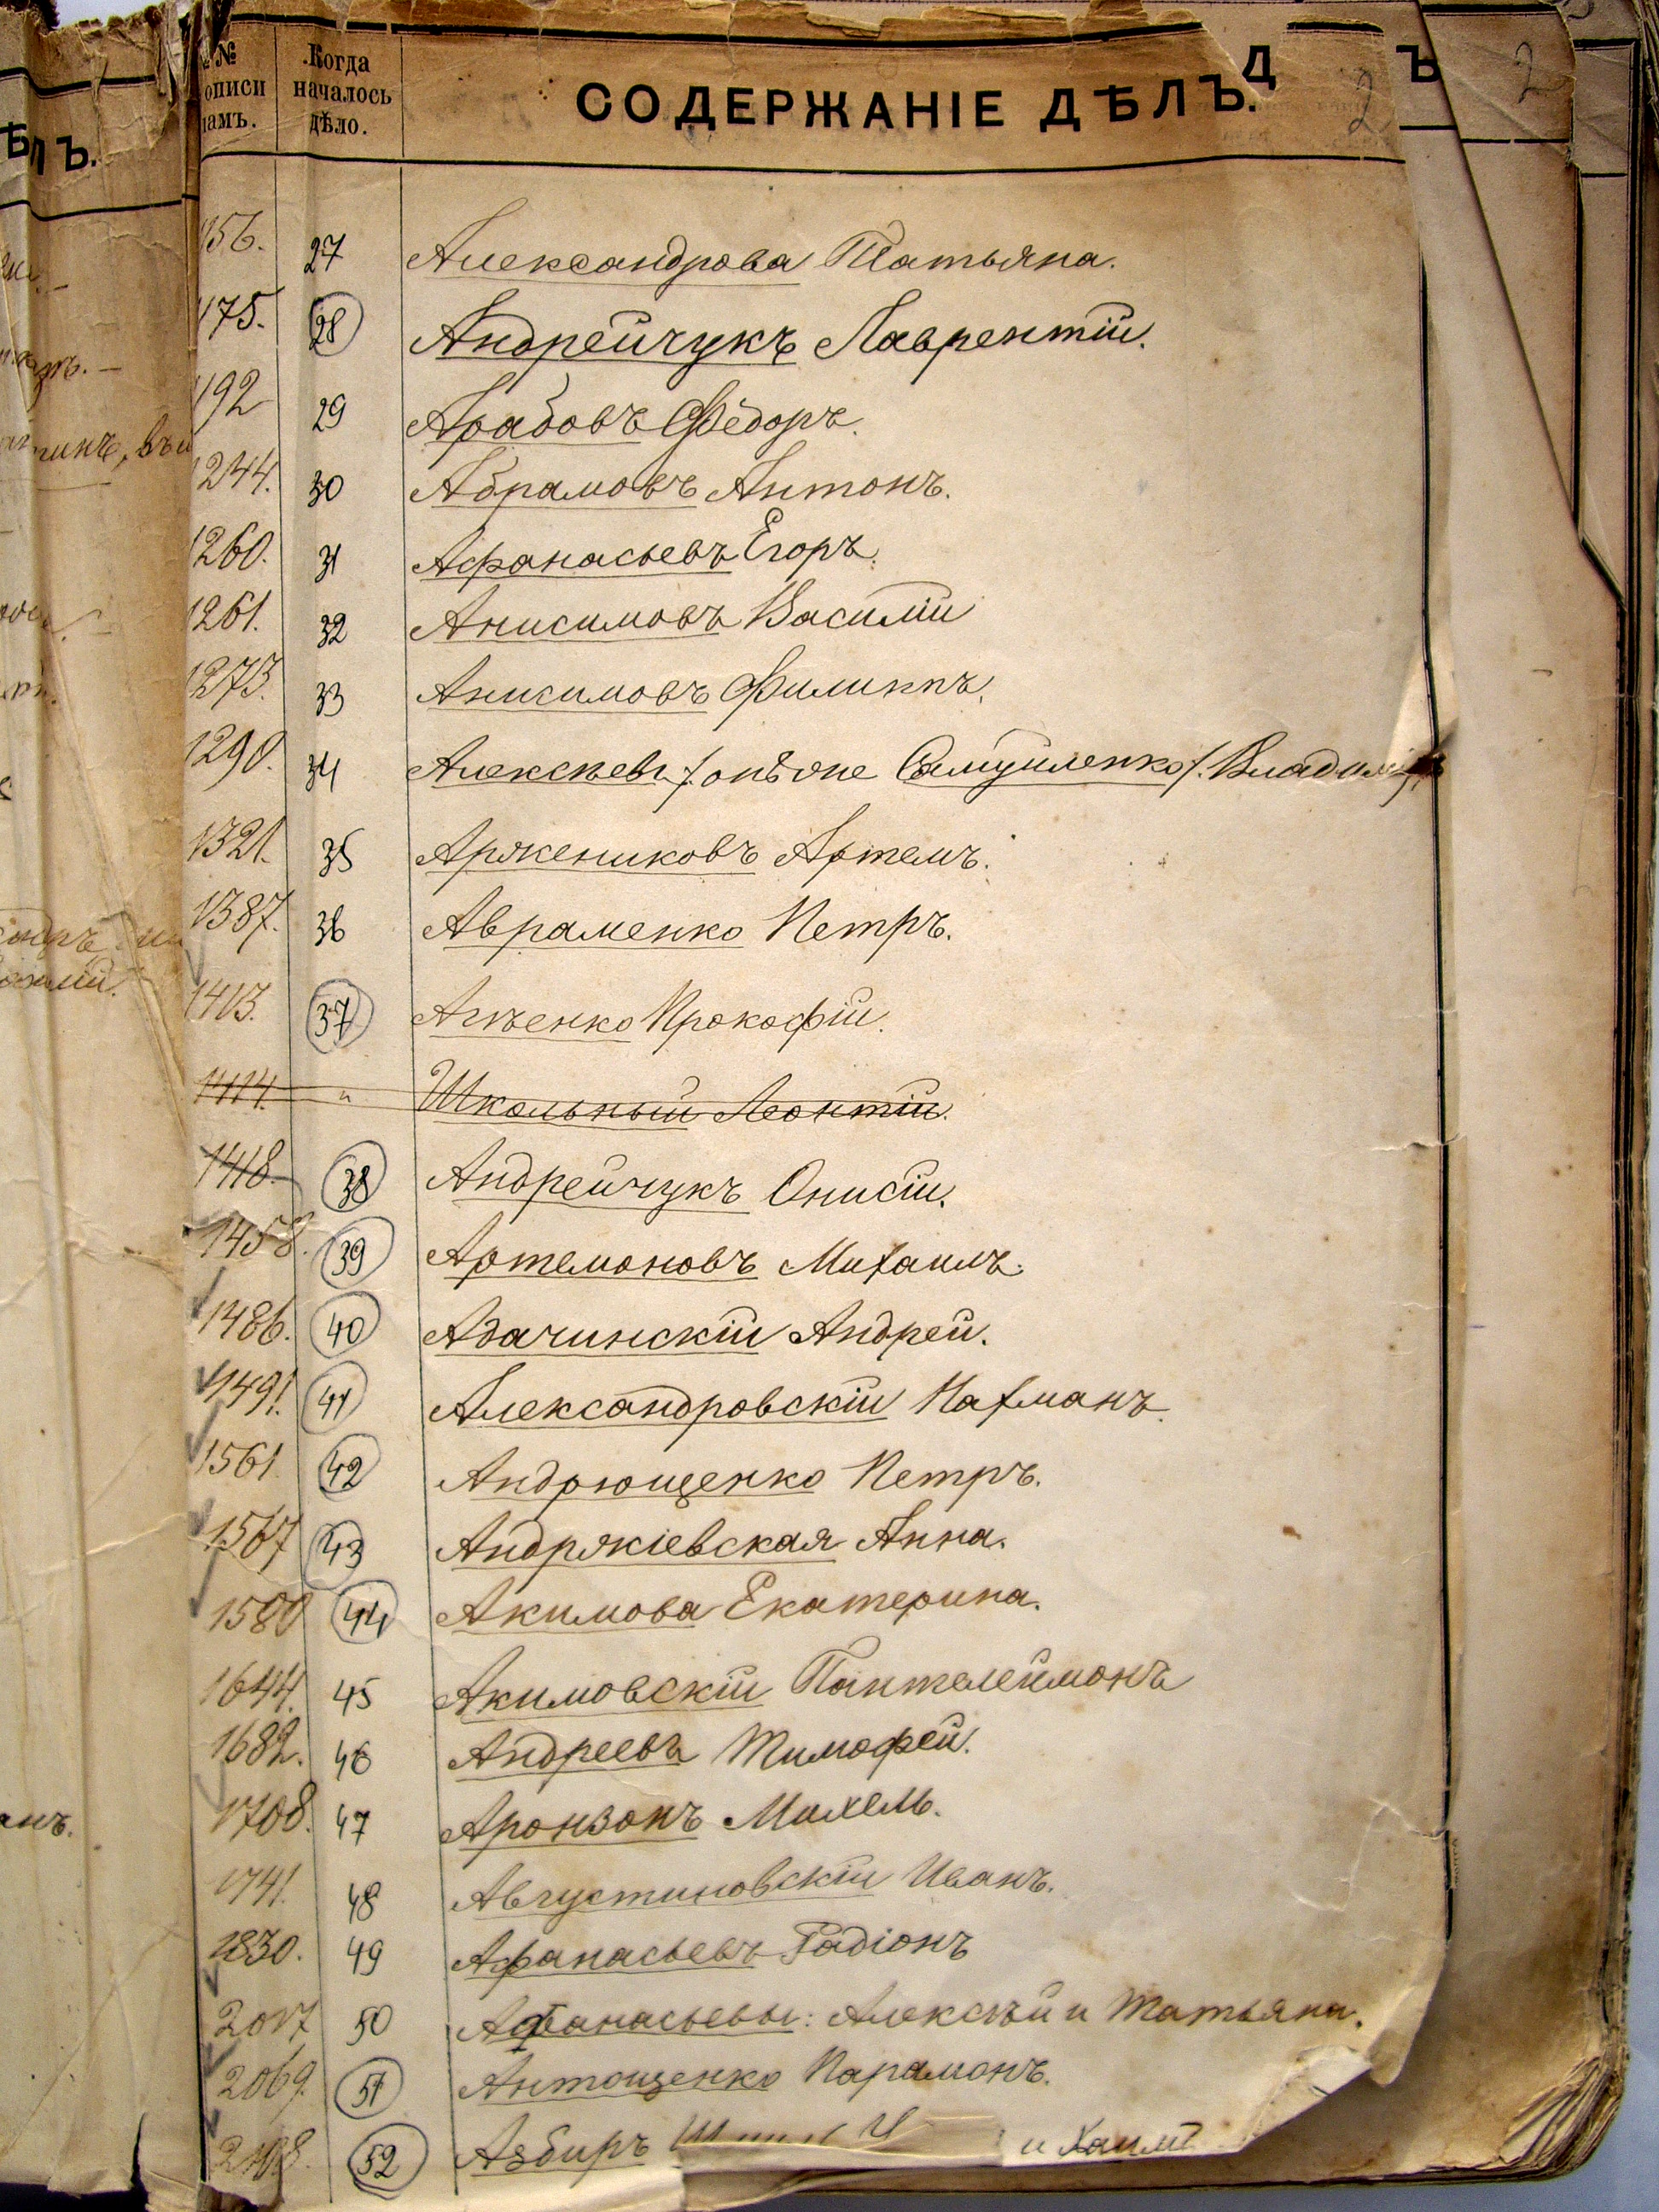 № Когда
описи началось СОДЕРЖАНІЕ ДѢЛЪ. 2 2
дѣло.
27 Александрова Татьяна.
175. 28 Андрейчукъ Лаврентій.
192 29 Арабовъ Ѳедоръ.
1244. 30 Абрамовъ Антонъ.
1260. 31 Афанасьевъ Егоръ.
1261. 32 Анисимовъ Василій
1273. 33 Анисимовъ Филиппъ.
1290. 34 Алексѣевъ /: онъ же Самуйленко /: Владимiръ
1321. 35 Аржениковъ Артемъ.
1387. 36 Авраменко Петръ.
1413. 37 Прокофій.
1414. " Школьный Леонтій.
1418. 38 Андрейчукъ Онисій.
1458. 39 Артемоновъ Михаилъ.
1486. 40 Адачинскій Андрей.
1491. 41 Александровскій Нахманъ.
1561 42 Андрющенко Петръ.
1567 43 Андржіевская Анна.
1580 44 Акимова Екатерина.
1644. 45 Акимовскій Пантелеймонъ
1682. 46 Андреевъ Тимофей.
1708. 47 Аронзонъ Михель.
1741. 48 Августиновскій Иванъ.
1830. 49 Афанасьевъ Радіонъ
2017 50 Афанасьевы: Алексѣй и Татьяна.
2069. 51 Антощенко Парамонъ.
52 Азбиръ и Хаимъ